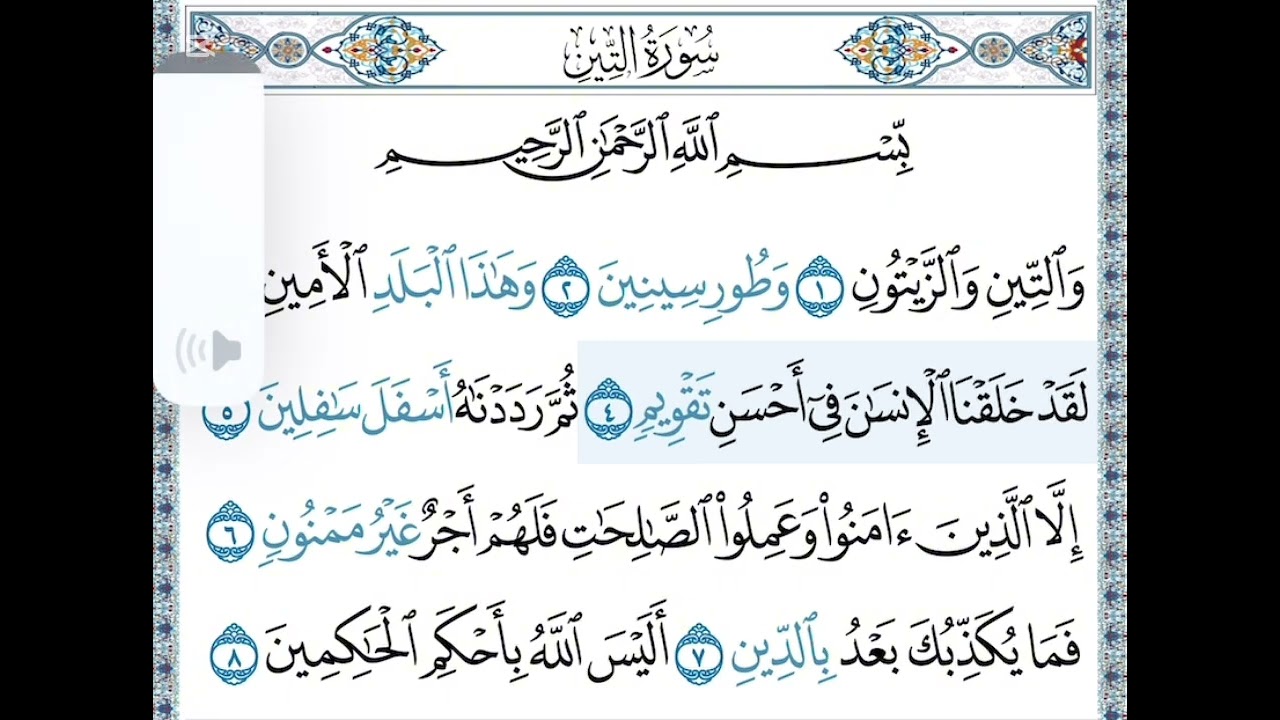 سُورَةُ التِّينِ
بِّسْمِ ٱللَّهِ ٱلرَّحْمَٰنِ ٱلرَّحِيمِ
وَٱلتِّينِ وَٱلزَّيْتُونِ ١ وَطُورِ سِينِينَ ٢ وَهَٰذَا ٱلْبَلَدِ ٱلْأَمِينِ
لَقَدْ خَلَقْنَا ٱلْإِنسَٰنَ فِىٓ أَحْسَنِ تَقْوِيمٍ ٤ ثُمَّ رَدَدْنَٰهُ أَسْفَلَ سَٰفِلِينَ ٥
إِلَّا ٱلَّذِينَ ءَامَنُوا۟ وَعَمِلُوا۟ ٱلصَّٰلِحَٰتِ فَلَهُمْ أَجْرٌ غَيْرُ مَمْنُونٍ ٦
فَمَا يُكَذِّبُكَ بَعْدُ بِٱلدِّينِ ٧ أَلَيْسَ ٱللَّهُ بِأَحْكَمِ ٱلْحَٰكِمِينَ ٨